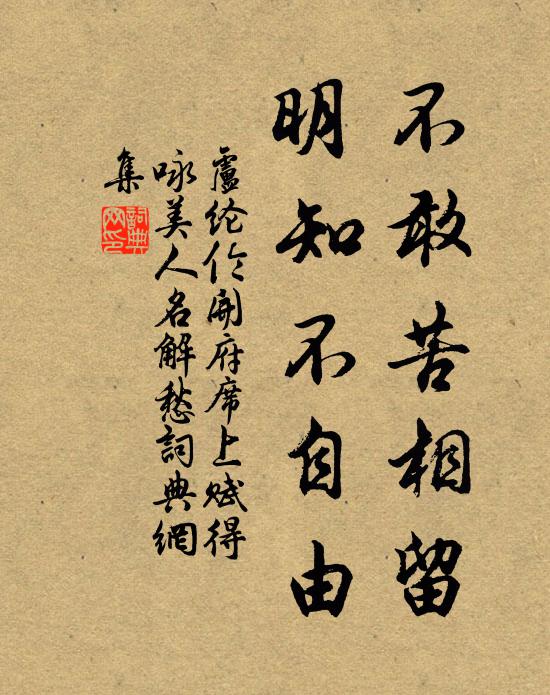 不敢苦相留
明知不自由
盧纶伦開府席上赋得
咏美人名解愁詞典網
集
詞典网印